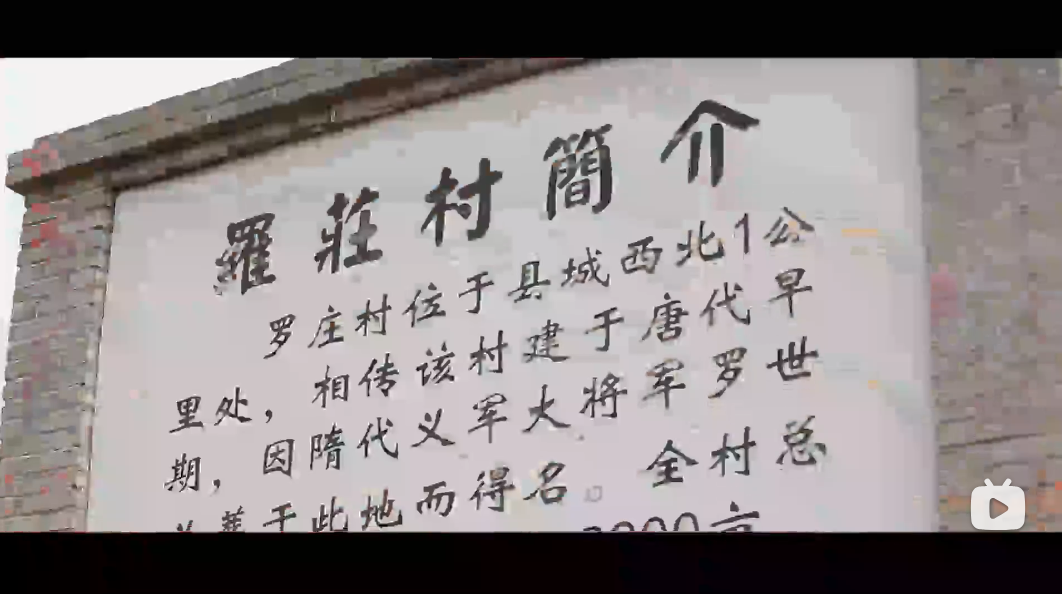 羅莊村簡介
罗庄村位于县城西北1公
里处，相传该村建于唐代早
期，因隋代义军大将军罗世
葬于此地而得名。全村总